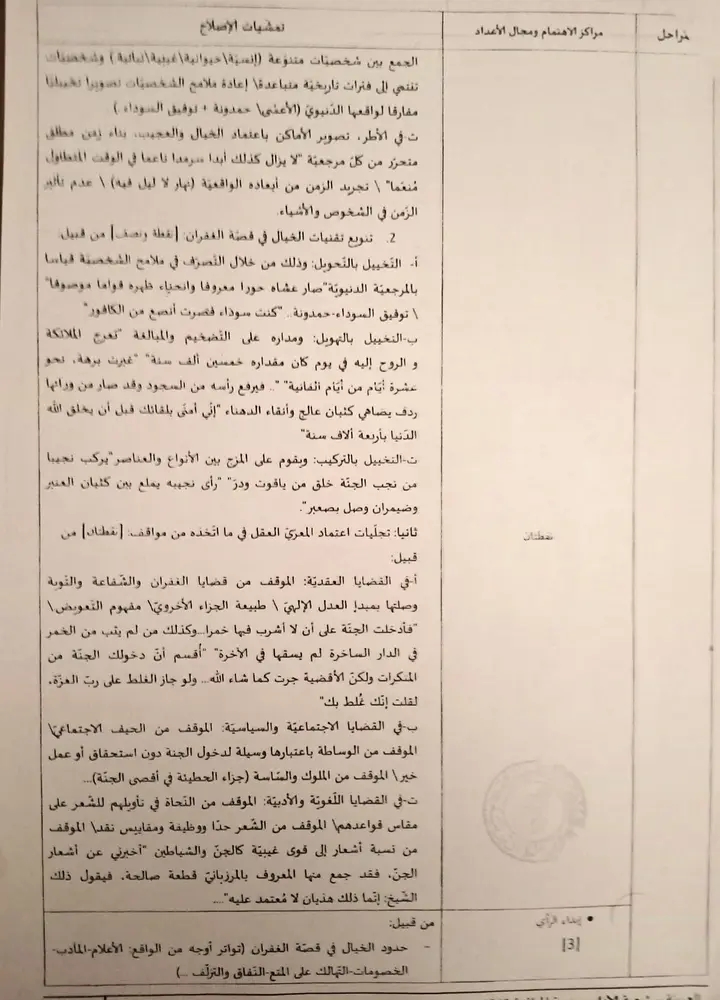 مراحل
مراكز الاهتمام ومجال الأعداد
تمشيات الإصلاح
الجمع بين شخصيّات متنوّعة (إنسيّة\حيوانيّة\غيبيّة\نباتية) وشخصيّات
تنتمي إلى فترات تاريخيّة متباعدة\ إعادة ملامح الشخصيّات تصويرا تخييليّا
مفارقا لواقعها الدّنيويّ (الأعشى\ حمدونة + توفيق السوداء..)
ت-في الأطر، تصوير الأماكن باعتماد الخيال والعجيب، بناء زمن مطلق
متحرّر من كلّ مرجعيّة "لا يزال كذلك أبدا سرمدا ناعما في الوقت المتطاول
مُنعَما" \ تجريد الزمن من أبعاده الواقعيّة (نهار لا ليل فيه) \ عدم تأثير
الزّمن في الشخوص والأشياء.
2. تنويع تقنيات الخيال في قصّة الغفران: [نقطة ونصف] من قبيل:
أ- التّخييل بالتّحويل: وذلك من خلال التّصرّف في ملامح الشخصيّة قياسا
بالمرجعيّة الدنيويّة"صار عشاه حورا معروفا وانحناء ظهره قواما موصوفا"
\ توفيق السوداء-حمدونة.. "كنت سوداء فصرت أنصع من الكافور"
ب-التّخييل بالتهويل: ومداره على التّضخيم والمبالغة "تعرج الملائكة
و الروح إليه في يوم كان مقداره خمسين ألف سنة" "غبرت برهة، نحو
عشرة أيّام من أيّام الفانية" "... فيرفع رأسه من السجود وقد صار من ورائها
ردف يضاهي كثبان عالج وأنقاء الدهناء "إنّي أمنّى بلقائك قبل أن يخلق الله
الدّنيا بأربعة ألاف سنة"
ت-التّخييل بالتّركيب: ويقوم على المزج بين الأنواع والعناصر"يركب نجيبا
من نجب الجنّة خلق من ياقوت ودرّ" "رأى نجيبه يملع بين كثبان العنبر
وضيمران وصل بصعبر".
ثانيا: تجلّيات اعتماد المعرّيّ العقل في ما اتّخذه من مواقف: [نقطتان] من
قبيل:
نقطتان
أ-في القضايا العقديّة: الموقف من قضايا الغفران والشّفاعة والتّوبة
وصلتها بمبدإ العدل الإلهيّ \ طبيعة الجزاء الأخرويّ\ مفهوم التّعويض\
"فأدخلت الجنّة على أن لا أشرب فيها خمرا...وكذلك من لم يتب من الخمر
في الدار الساخرة لم يسقها في الآخرة" "أُقسم أنّ دخولك الجنّة من
المنكرات ولكنّ الأقضية جرت كما شاء الله... ولو جاز الغلط على ربّ العزّة،
لقلت إنّك غُلط بك"
ب-في القضايا الاجتماعيّة والسياسيّة: الموقف من الحيف الاجتماعيّ\
الموقف من الوساطة باعتبارها وسيلة لدخول الجنة دون استحقاق أو عمل
خير\ الموقف من الملوك والسّاسة (جزاء الحطيئة في أقصى الجنّة)...
ت-في القضايا اللّغويّة والأدبيّة: الموقف من النّحاة في تأويلهم للشّعر على
مقاس قواعدهم\ الموقف من الشّعر حدّا ووظيفة ومقاييس نقد\ الموقف
من نسبة أشعار إلى قوى غيبيّة كالجنّ والشياطين "أخبرني عن أشعار
الجنّ، فقد جمع منها المعروف بالمرزبانيّ قطعة صالحة، فيقول ذلك
الشّيخ: إنّما ذلك هذيان لا مُعتمد عليه"....
• إبداء الرأي
[3]
من قبيل:
- حدود الخيال في قصّة الغفران (تواتر أوجه من الواقع: الأعلام-المآدب-
الخصومات-التّهالك على المتع-النّفاق والتزلّف ...)